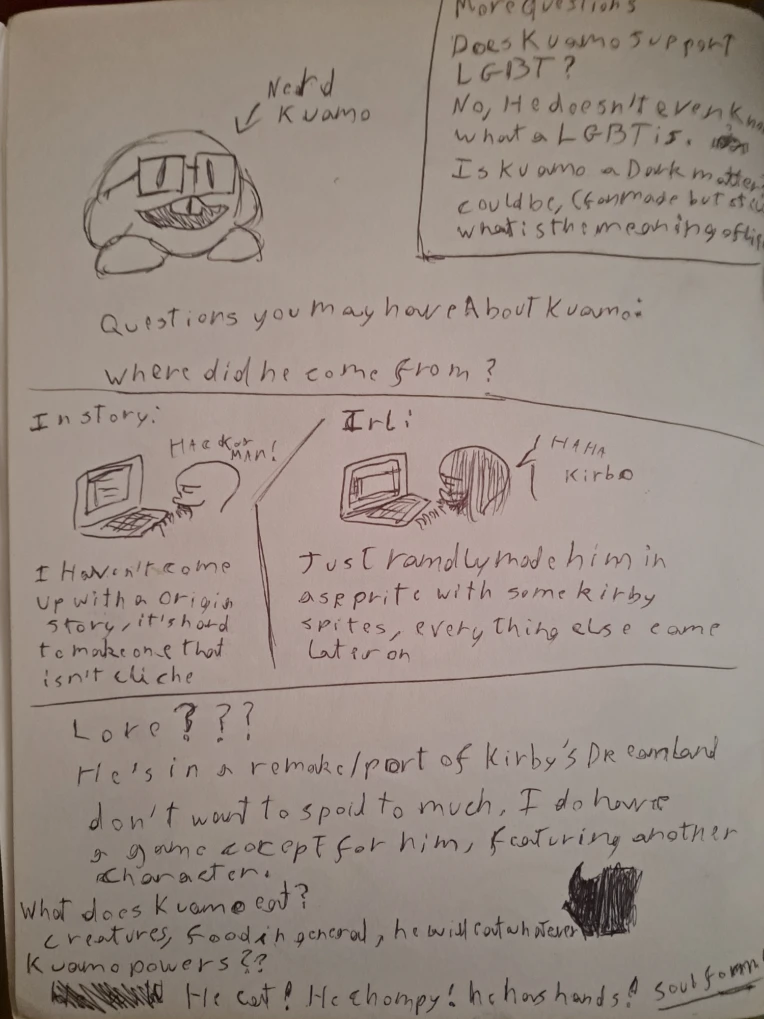 Nerd
Kuamo
More Questions
Does Kuamo support
LGBT?
No, He doesn't even
what a LGBT is.
Is Kuamo a Dark matter
could be, (fanmade but
what is the meaning of
Questions you may have About Kuamo:
where did he come from?
In story:
HACKOR
MAN!
I Haven't come
up with a origin
story, it's hard
to make one that
isn't cliche
Irl:
HAHA
Kirbo
Just ramdly made him in
aseprite with some kirby
spites, every thing else came
later on
Lore???
He's in a remake/port of Kirby's Dreamland
don't want to spoil to much, I do have
a game cocept for him, featuring another
character.
What does Kuamo eat?
creatures, food in general, he will eat whatever
Kuamo powers??
He eat! He chompy! he has hands! soul form